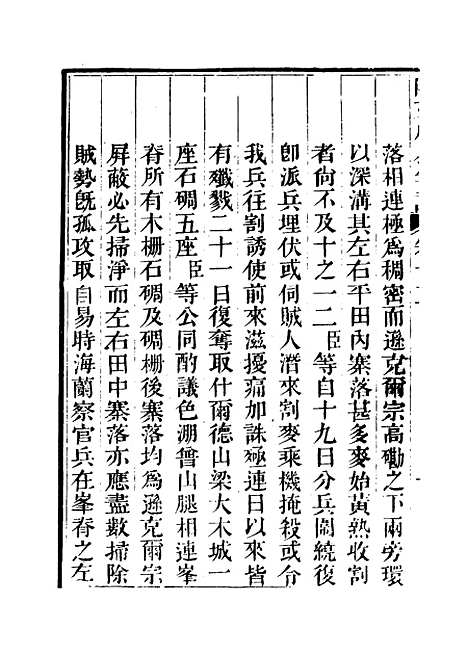 落相連極爲稠密而遜克爾宗高磡之下兩旁環
以深溝其左右平田內寨落甚多麥始黃熟收割
者尙不及十之一二臣等自十九日分兵圍繞復
卽派兵埋伏或伺賊人潛來割麥乘機掩殺或分
我兵往割誘使前來滋擾痛加誅殛連日以來皆
有殲戮二十一日復奪取什爾德山梁大木城一
座石碉五座臣等公同酌議色淜普山腿相連峯
脊所有木柵石碉及碉柵後寨落均爲遜克爾宗
屏蔽必先掃淨而左右田中寨落亦應盡數掃除
賊勢旣孤攻取自易時海蘭察官兵在峯脊之左